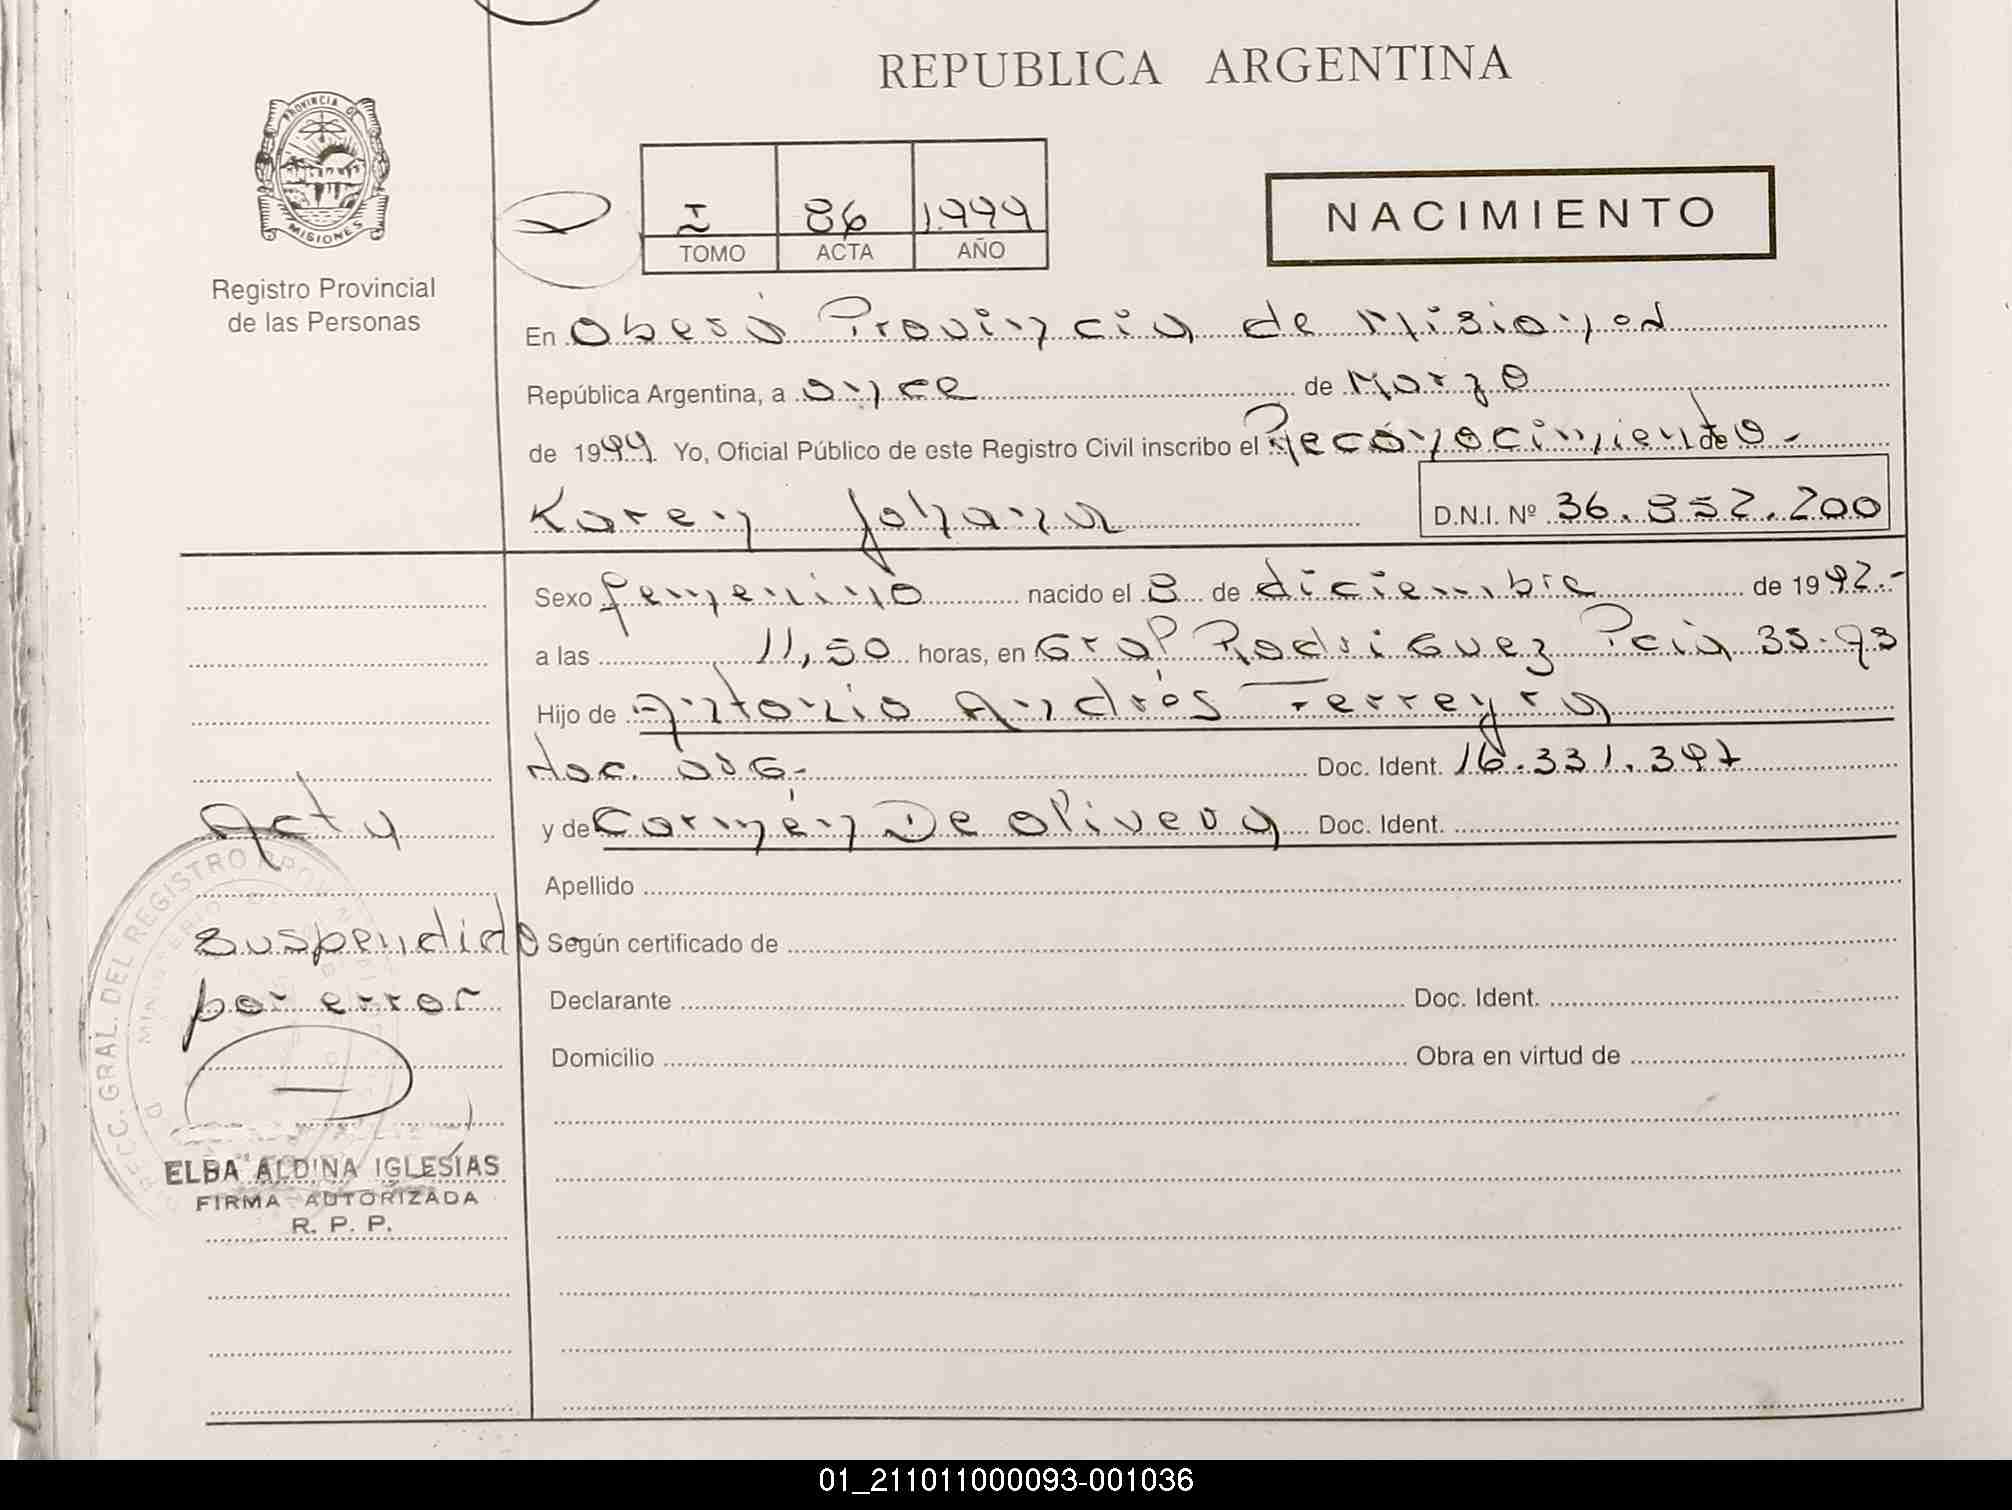 REPUBLICA ARGENTINA
PROVINCIA DE
MISIONES
Registro Provincial
de las Personas
I 86 1.999
TOMO ACTA AÑO
NACIMIENTO
En Oberá Provincia de Misiones
República Argentina, a once de Marzo
de 1999 Yo, Oficial Público de este Registro Civil inscribo el Reconocimiento de
Karen Johana D.N.I. Nº 36.852.200
Sexo femenino nacido el 8 de diciembre de 1992.-
a las 11,50 horas, en Gral Rodriguez Pcia 35-93
Hijo de Antonio Andrés Ferreyra
Nac. arg.- Doc. Ident. 16.331.397
y de Carmén De Olivera Doc. Ident.
Apellido
Según certificado de
Declarante Doc. Ident.
Domicilio Obra en virtud de
Acta
suspendido
por error
DIRECC. GRAL. DEL REGISTRO PROV
ELBA ALDINA IGLESIAS
FIRMA AUTORIZADA
R. P. P.
01_211011000093-001036